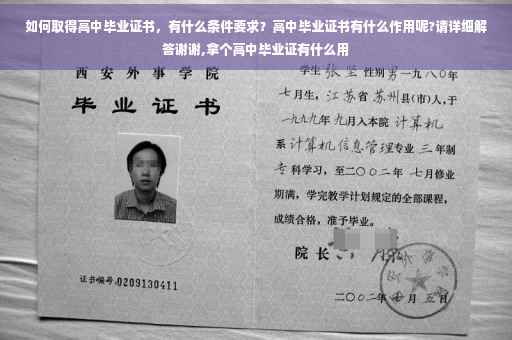 如何取得高中毕业证书，有什么条件要求？高中毕业证书有什么作用呢?请详细解
答谢谢,拿个高中毕业证有什么用
西安外事学院
毕业证书
证书编号:0209130411
学生 张坚 性别 男 一九八〇年
七月生，江苏省 苏州县(市)人,于
一九九九年九月入本院 计算机
系 计算机信息管理专业 三 年制
专科学习，至二〇〇二年 七月修业
期满，学完教学计划规定的全部课程，
成绩合格，准予毕业。
院长
二〇〇二年 月 五日